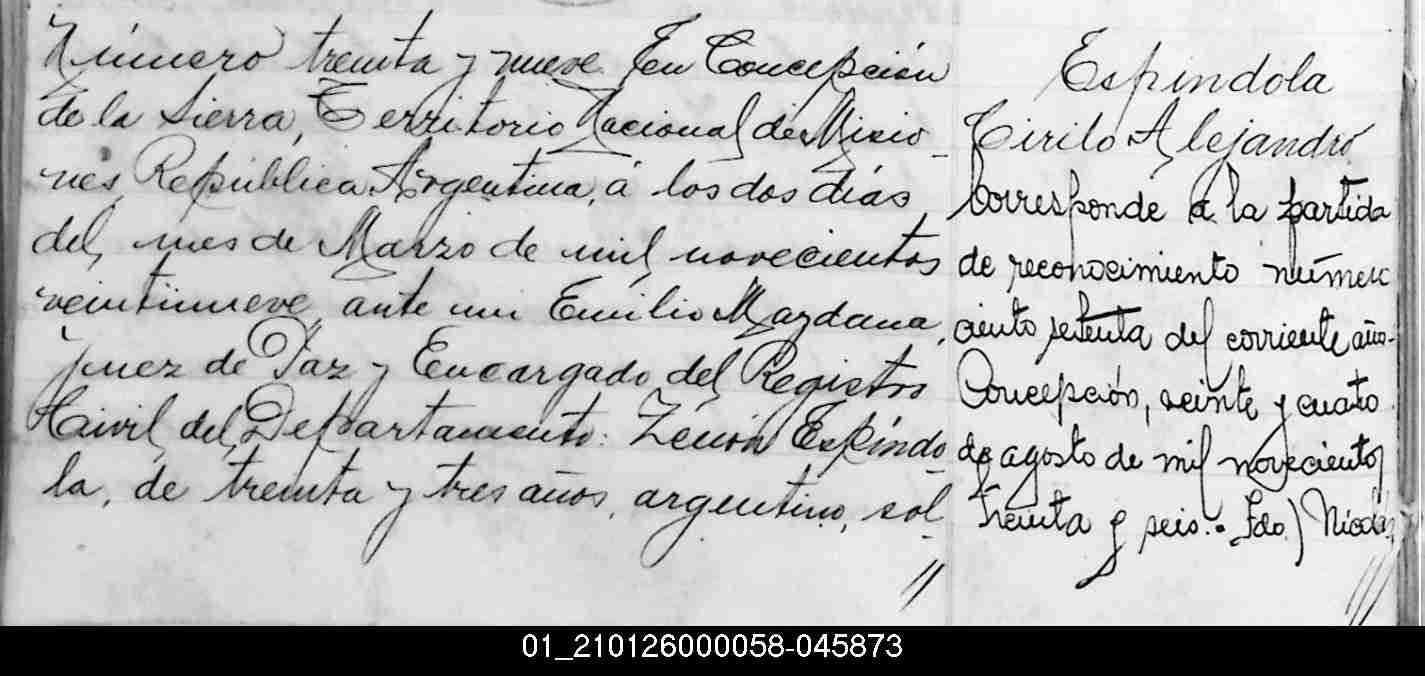 Número treinta y nueve. En Concepción
de la Sierra, Territorio Nacional de Misio-
nes, República Argentina, á los dos días
del mes de Marzo de mil novecientos
veintinueve, ante mi Emilio Maydana,
Juez de Paz y Encargado del Registro
Civil del Departamento: Zenón Espíndo-
la, de treinta y tres años, argentino, sol
//
Espindola
Cirilo Alejandro
Corresponde a la partida
de reconocimiento númer
ciento setenta del corriente año.
Concepción, veinte y cuatro
de agosto de mil novecientos
treinta y seis.. Fdo.) Nicolas
///
01_210126000058-045873